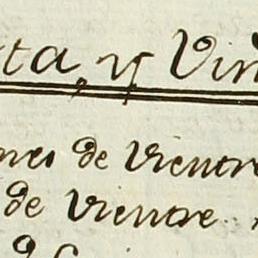 ta, y Vin
nes de Vientre
de Vientre